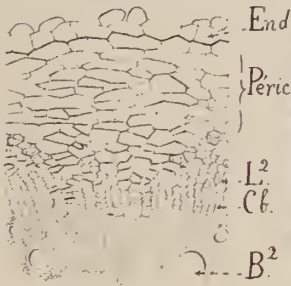 End
Péric
L²
Cb.
B²